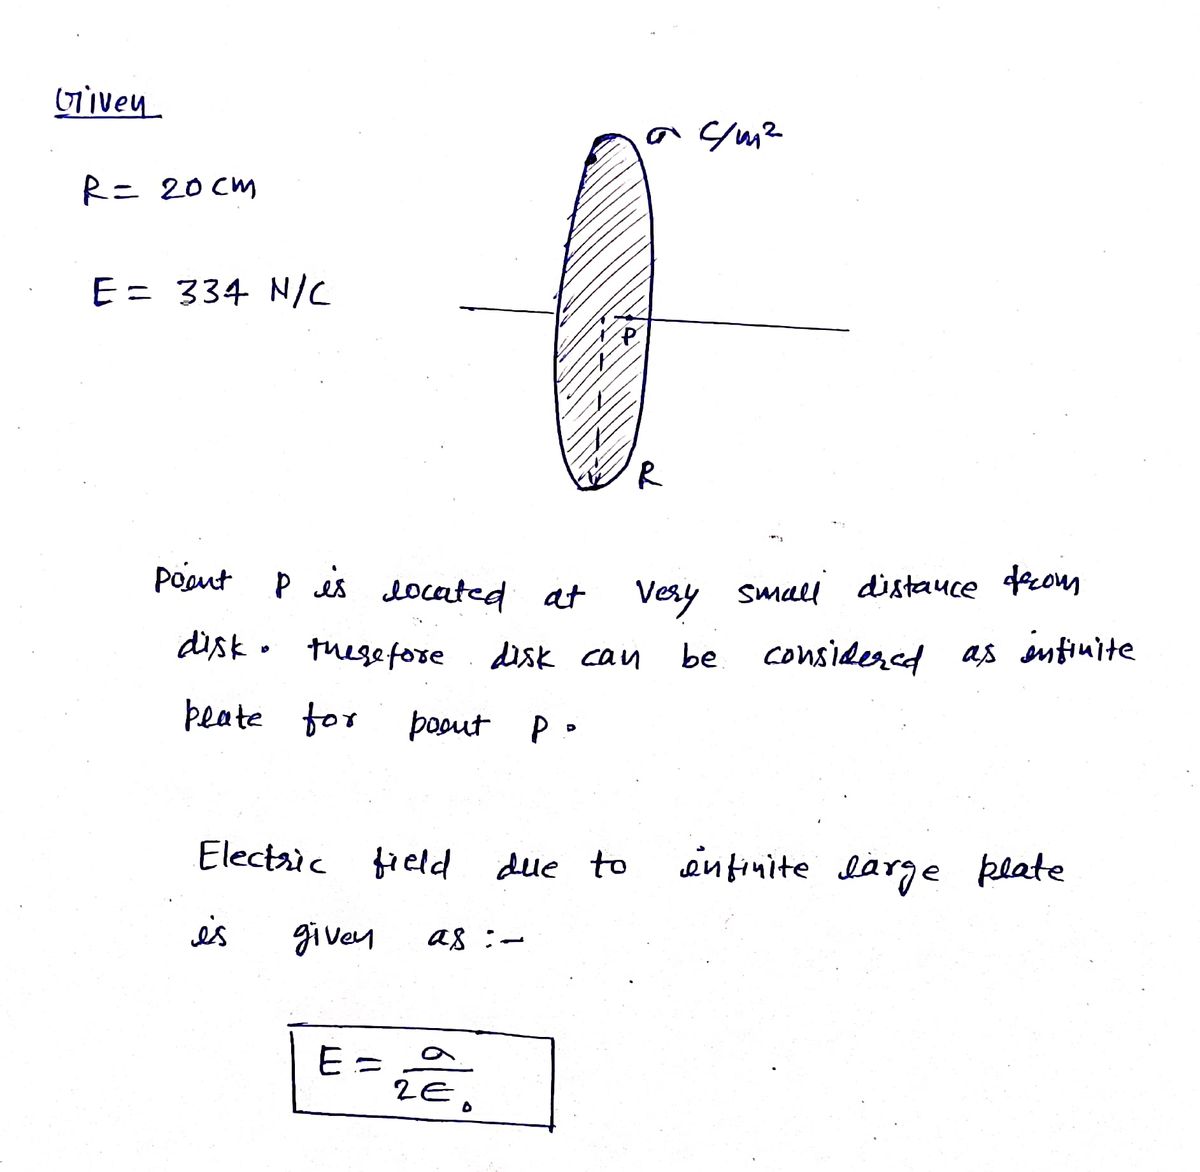 Given
σ C/m²
R = 20 cm
E = 334 N/C
P
R
Point P is located at very small distance from
disk. therefore disk can be considered as infinite
plate for point P.
Electric field due to infinite large plate
is given as :-
E = σ / 2ϵ₀